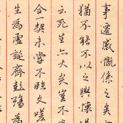 事遷感慨係之矣
猶不能不以之興懷
云死生亦大矣豈不
合一契未嘗不臨文嗟
生為虛誕齊彭殤